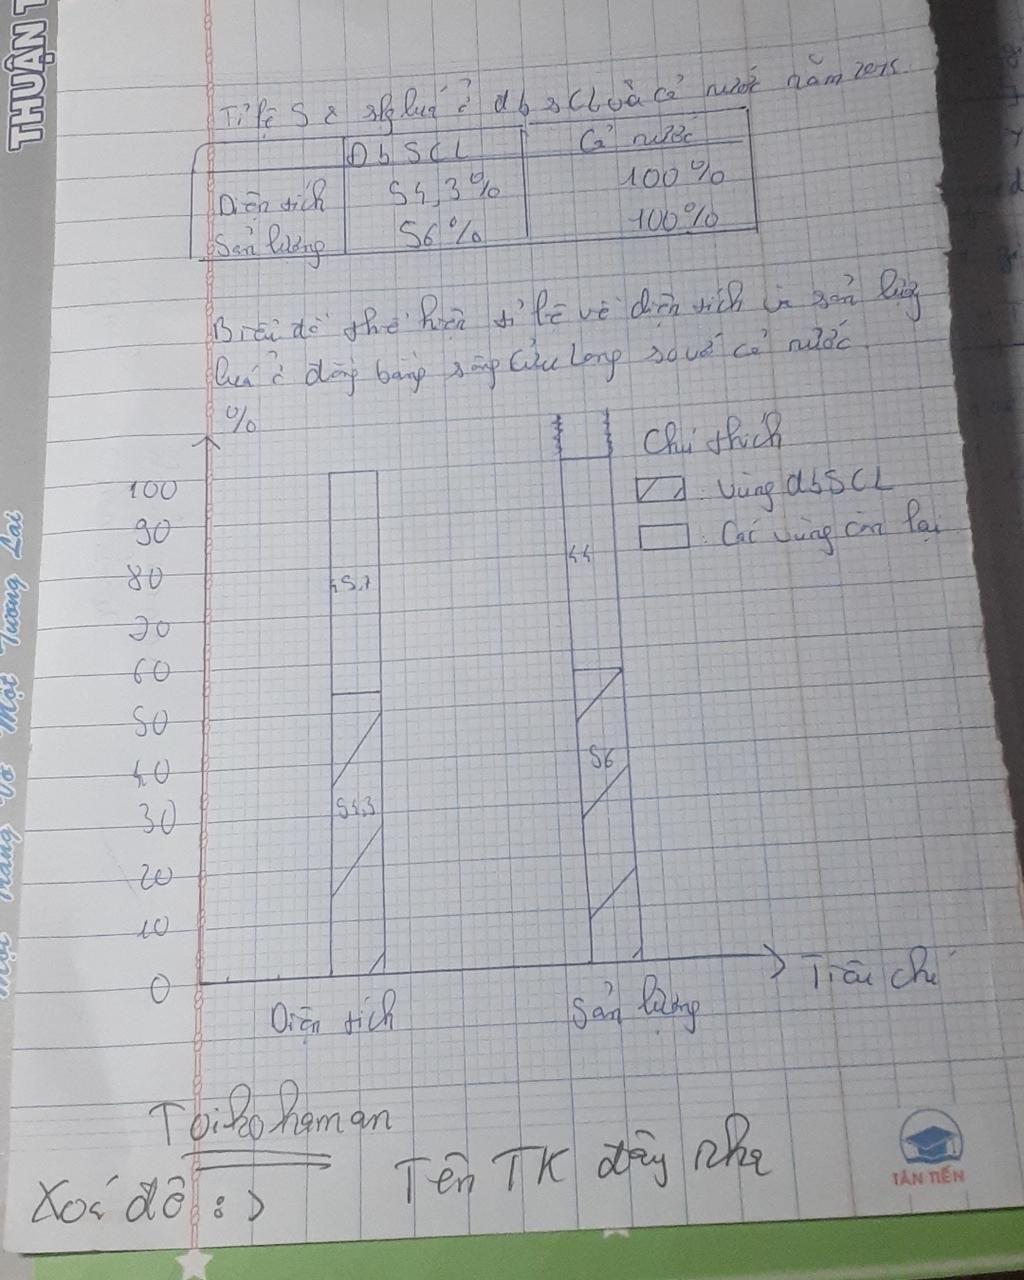 THUẬN T
Tỉ lệ S & slg lúa ở đb sCL và cả nước năm 2015
ĐbSCL Cả nước
Diện tích 54,3% 100%
Sản lượng 56% 100%
Biểu đồ thể hiện tỉ lệ về diện tích và sản lượng
lúa ở đồng bằng sông Cửu Long so với cả nước
%
Chú thích
: Vùng đbSCL
: Các vùng còn lại
100
90
80
70
60
50
40
30
20
10
0
45,7
54,3
44
56
Diện tích
Sản lượng
Tiêu chí
Toikohaman
Tên TK đây nha
Xoá đô :)
TÂN TIẾN
Một Trang Vở Một Tương Lai